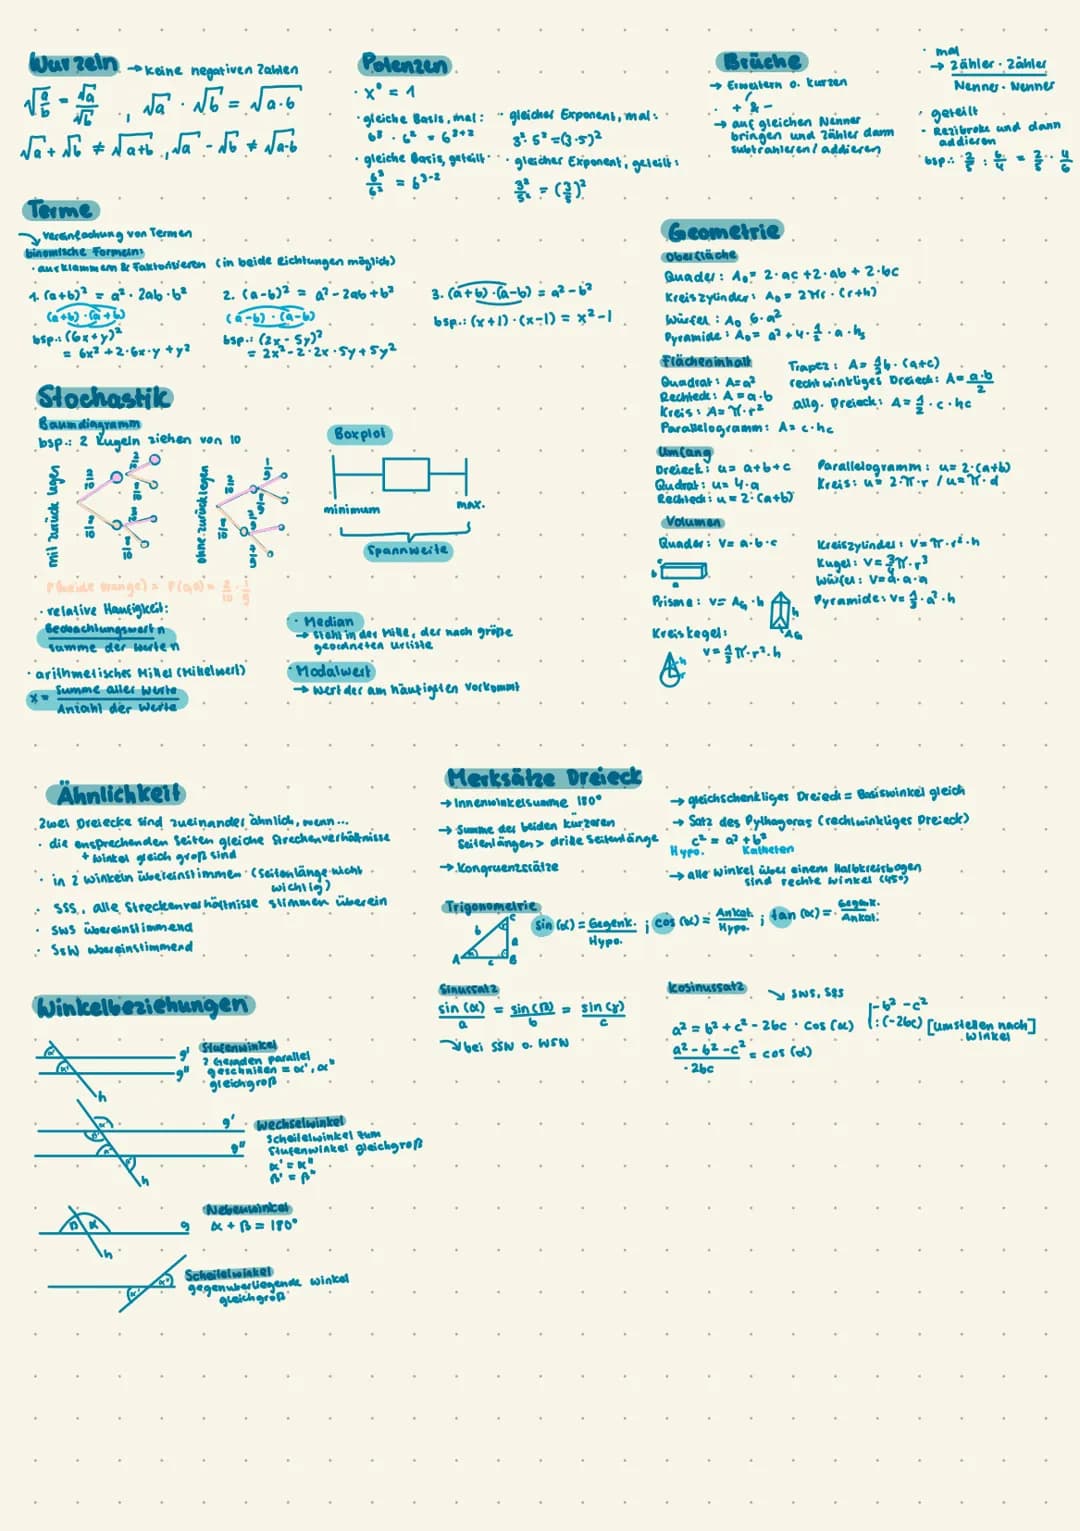 Wurzeln → keine negativen Zahlen
√(a/b) = √a/√b , √a · √b = √(a·b)
√a + √b ≠ √(a+b) , √a - √b ≠ √(a-b)
Potenzen
· x⁰ = 1
· gleiche Basis, mal:
6³ · 6² = 6³⁺²
· gleiche Basis, geteilt:
6³/6² = 6³⁻²
· gleicher Exponent, mal:
3² · 5² = (3·5)²
· gleicher Exponent, geteilt:
3²/5² = (3/5)²
Brüche
→ Erweitern o. kürzen
· + & -
→ auf gleichen Nenner
bringen und Zähler dann
subtrahieren/addieren
· mal
→ Zähler · Zähler
Nenner · Nenner
· geteilt
addieren
Terme
Vereinfachung von Termen
binomische Formeln:
· ausklammern & Faktorisieren (in beide Richtungen möglich)
1. (a+b)² = a² · 2ab · b²
(a+b) · (a+b)
bsp.: (6x+y)²
= 6x² + 2·6x·y + y²
2. (a-b)² = a² - 2ab + b²
(a-b) · (a-b)
bsp.: (2x - 5y)²
= 2x² - 2·2x·5y + 5y²
3. (a+b) · (a-b) = a² - b²
bsp.: (x+1) · (x-1) = x² - 1
Geometrie
Oberfläche
Quader: A₀ = 2·ac + 2·ab + 2·bc
Kreiszylinder: A₀ = 2πr · (r+h)
Würfel: A₀ 6·a²
Pyramide: A₀ = a² + 4 · 1/2 · a · hs
Flächeninhalt
Quadrat: A=a²
Rechteck: A = a·b
Kreis: A = π·r²
Parallelogramm: A = c·hc
Trapez: A = 1/2 b · (a+c)
rechtwinkliges Dreieck: A = a·b/2
allg. Dreieck: A = 1/2 · c · hc
Umfang
Dreieck: u = a+b+c
Qudrat: u = 4·a
Rechteck: u = 2·(a+b)
Parallelogramm: u = 2·(a+b)
Kreis: u = 2·π·r / u = π·d
Volumen
Quader: V = a·b·c
c
b
a
Prisma: V = AG · h
h
AG
Kreiskegel:
V = 1/3 π·r²·h
h
r
Kreiszylinder: V = π·r²·h
Kugel: V = 3/4 π·r³
Würfel: V = a·a·a
Pyramide: V = 1/3 · a² · h
Stochastik
Baumdiagramm
bsp.: 2 Kugeln ziehen von 10
mit zurück legen
ohne zurücklegen
P(beide orange) = P(o,o) = 2/10 · 1/9
· relative Häufigkeit:
Beobachtungswert n
Summe der Werte n
· arithmetisches Mittel (Mittelwert)
x = Summe aller Werte
Anzahl der Werte
Boxplot
minimum
max.
Spannweite
· Median
geordneten Urliste
· Modalwert
→ Wert der am häufigsten vorkommt
Ähnlichkeit
Zwei Dreiecke sind zueinander ähnlich, wenn...
· die ensprechenden Seiten gleiche Streckenverhältnisse
+ Winkel gleich groß sind
· in 2 Winkeln übereinstimmen (Seitenlänge nicht
wichtig)
· SSS, alle Streckenverhältnisse stimmen überein
· SWS übereinstimmend
· SsW übereinstimmend
Merksätze Dreieck
→ Innenwinkelsumme 180°
→ Summe der beiden kürzeren
Seitenlängen > dritte Seitenlänge
→ Kongruenzsätze
→ gleichschenkliges Dreieck = Basiswinkel gleich
→ Satz des Pythagoras (rechtwinkliges Dreieck)
c² = a² + b²
Hypo. Katheten
→ alle Winkel über einem Halbkreisbogen
sind rechte Winkel (45°)
Trigonometrie
A
B
C
b
a
c
sin (α) = Gegenk./Hypo. ; cos (α) = Ankat./Hypo. ; tan (α) = Gegenk./Ankat.
Sinussatz
sin (α)/a = sin (β)/b = sin (γ)/c
bei SSW o. WSW
Kosinussatz
SWS, SSS
a² = b² + c² - 2bc · cos (α) |-b² -c²
a² - b² - c²/-2bc = cos (α) |:(-2bc) [Umstellen nach]
Winkel
Winkelbeziehungen
g'
g"
h
Stufenwinkel
2 Geraden parallel
geschnitten = α', α"
gleichgroß
g'
g"
h
Wechselwinkel
Scheitelwinkel zum
Stufenwinkel gleichgroß
α' = α"
β' = β"
β α
g
h
Nebenwinkel
α + β = 180°
Scheitelwinkel
gegenüberliegende Winkel
gleichgroß